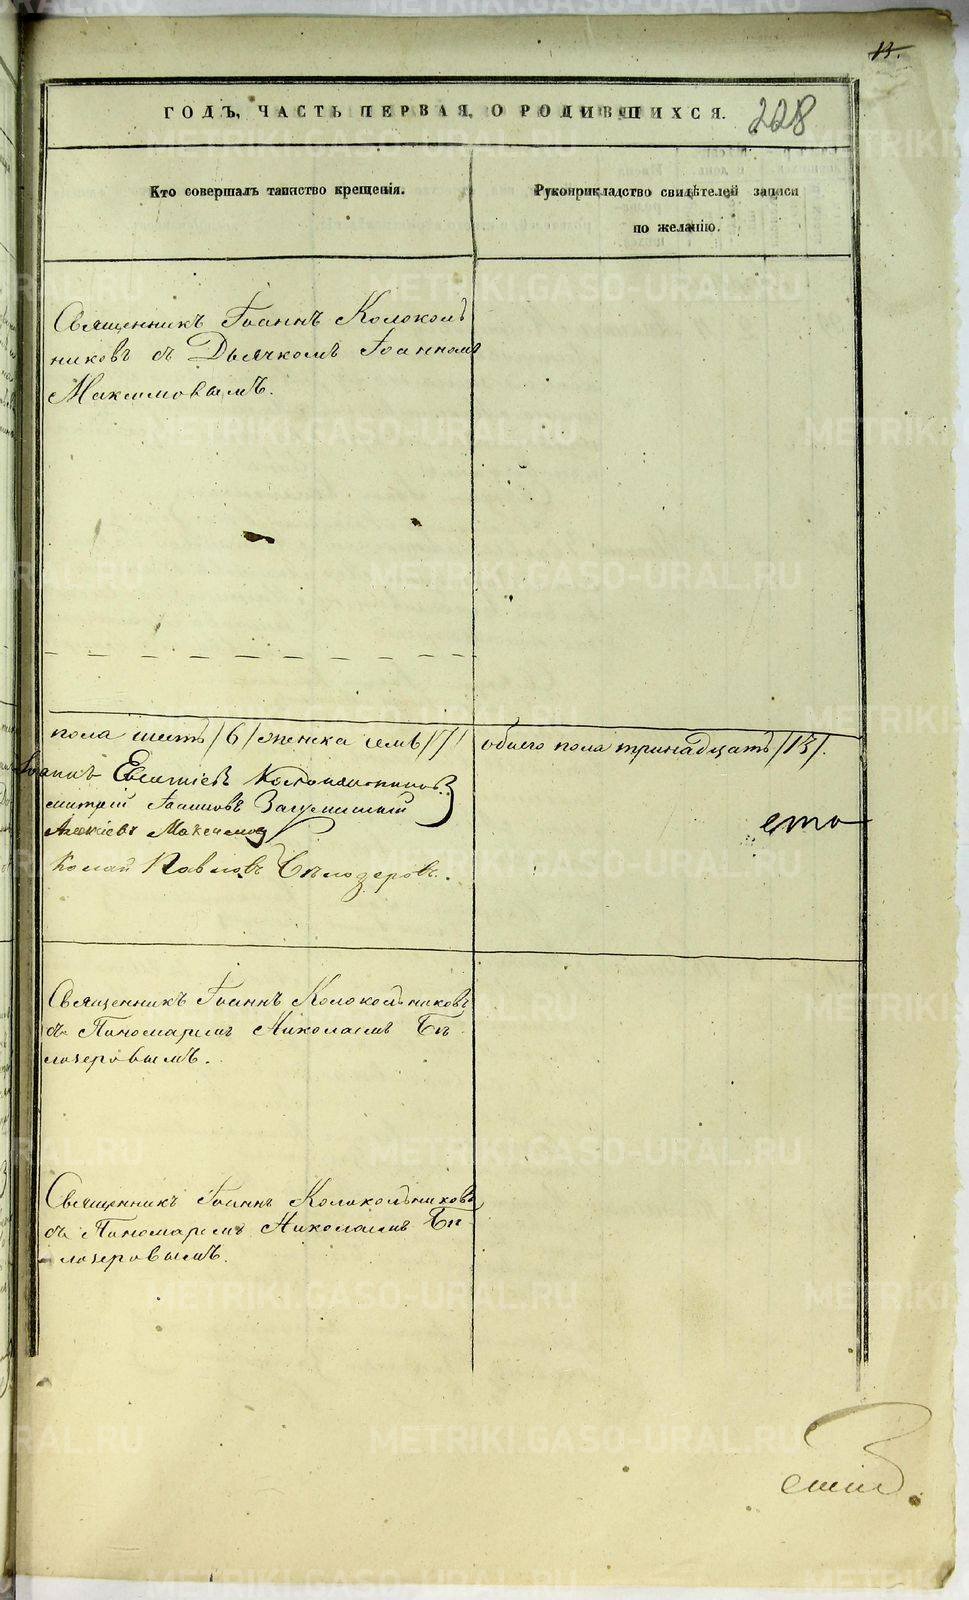 13.
ГОДЪ, ЧАСТЬ ПЕРВАЯ, О РОДИВШИХСЯ. 228
Кто совершалъ таинство крещенія.
Рукоприкладство свидѣтелей записи
по желанію.
Священникъ Іоаннъ Колоколь
никовъ съ Дьячкомъ Іоанномъ
Максимовымъ.
пола шесть /6/ женска семь /7/ обоего пола тринадцать /13/.
Іоаннъ Колокольниковъ
митрій Іоанновъ
Алексіевъ Максимов
колай Павловъ Бѣлозеровъ.
Священникъ Іоаннъ Колокольниковъ
съ Пономаремъ Николаемъ Бѣ
лозеровымъ.
Священникъ Іоаннъ Колокольниковъ
съ Пономаремъ Николаемъ Бѣ
лозеровымъ.
METRIKI.GASO-URAL.RU